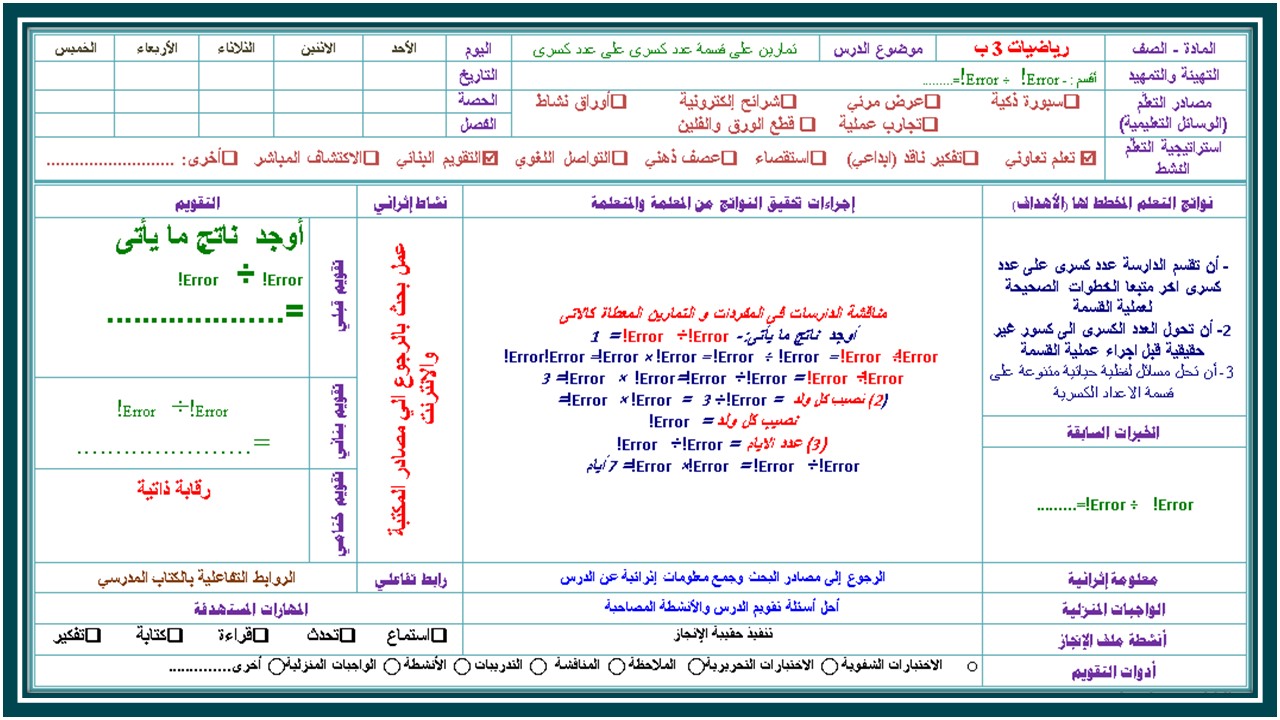 المادة - الصف
رياضيات 3 ب
موضوع الدرس
تمارين على قسمة عدد كسرى على عدد كسرى
اليوم
الأحد
الاثنين
الثلاثاء
الأربعاء
الخميس
التهيئة والتمهيد
أقسم : - Error! ÷ Error!=.........
التاريخ
مصادر التعلّم
(الوسائل التعليمية)
❑سبورة ذكية ❑عرض مرئي ❑شرائح إلكترونية ❑أوراق نشاط
❑تجارب عملية ❑ قطع الورق والفلين
الحصة
الفصل
استراتيجية التعلّم
النشط
☑ تعلم تعاوني ❑تفكير ناقد (ابداعي) ❑استقصاء ❑عصف ذهني ❑التواصل اللغوي ☑التقويم البنائي ❑الاكتشاف المباشر ❑أخرى: ..........................
نواتج التعلم المخطط لها (الأهداف)
إجراءات تحقيق النواتج من المعلمة والمتعلمة
نشاط إثرائي
التقويم
- أن تقسم الدارسة عدد كسرى على عدد
كسرى اخر متبعا الخطوات الصحيحة
لعملية القسمة
2- أن تحول العدد الكسرى الى كسور غير
حقيقية قبل اجراء عملية القسمة
3- أن تحل مسائل لفظية حياتية متنوعة على
قسمة الاعداد الكسرية
الخبرات السابقة
Error! ÷ Error!=.........
مناقشة الدارسات في المفردات و التمارين المعطاة كالاتى
أوجد ناتج ما يأتى:- Error! ÷ Error! = 1
Error! ÷ Error! = Error! ÷ Error! = Error! × Error! = Error!Error!
Error! ÷ Error! = Error! ÷ Error! = Error! × Error! = 3
(2) نصيب كل ولد = Error! ÷ 3 = Error! × Error! =
نصيب كل ولد = Error!
(3) عدد الايام = Error! ÷ Error!
Error! ÷ Error! = Error! × Error! = 7 أيام
عمل بحث بالرجوع الي مصادر المكتبة
والانترنت
تقويم قبلي
أوجد ناتج ما يأتى
Error! ÷ Error!
=..................
تقويم بنائي
Error! ÷ Error!
=.....................
تقويم ختامي
رقابة ذاتية
معلومة إثرائية
الرجوع إلى مصادر البحث وجمع معلومات إثرائية عن الدرس
رابط تفاعلي
الروابط التفاعلية بالكتاب المدرسي
الواجبات المنزلية
أحل أسئلة تقويم الدرس والأنشطة المصاحبة
المهارات المستهدفة
أنشطة ملف الإنجاز
تنفيذ حقيبة الإنجاز
❑استماع ❑تحدث ❑قراءة ❑كتابة ❑تفكير
أدوات التقويم
○ الاختبارات الشفوية ○ الاختبارات التحريرية ○ الملاحظة ○ المناقشة ○ التدريبات ○ الأنشطة ○ الواجبات المنزلية ○ أخرى..............